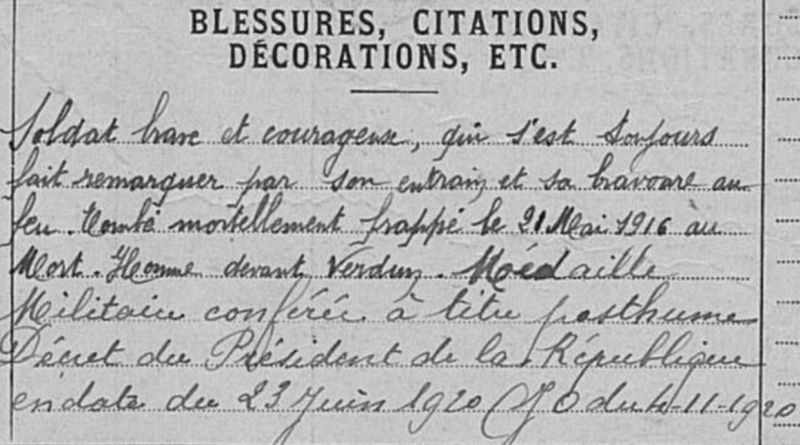 BLESSURES, CITATIONS,
DÉCORATIONS, ETC.
Soldat brave et courageux, qui s'est toujours
fait remarquer par son entrain et sa bravoure au
feu. Tombé mortellement frappé le 21 Mai 1916 au
Mort-Homme devant Verdun. Médaille
Militaire conférée à titre posthume
Décret du Président de la République
en date du 23 Juin 1920 (JO du 4-11-1920